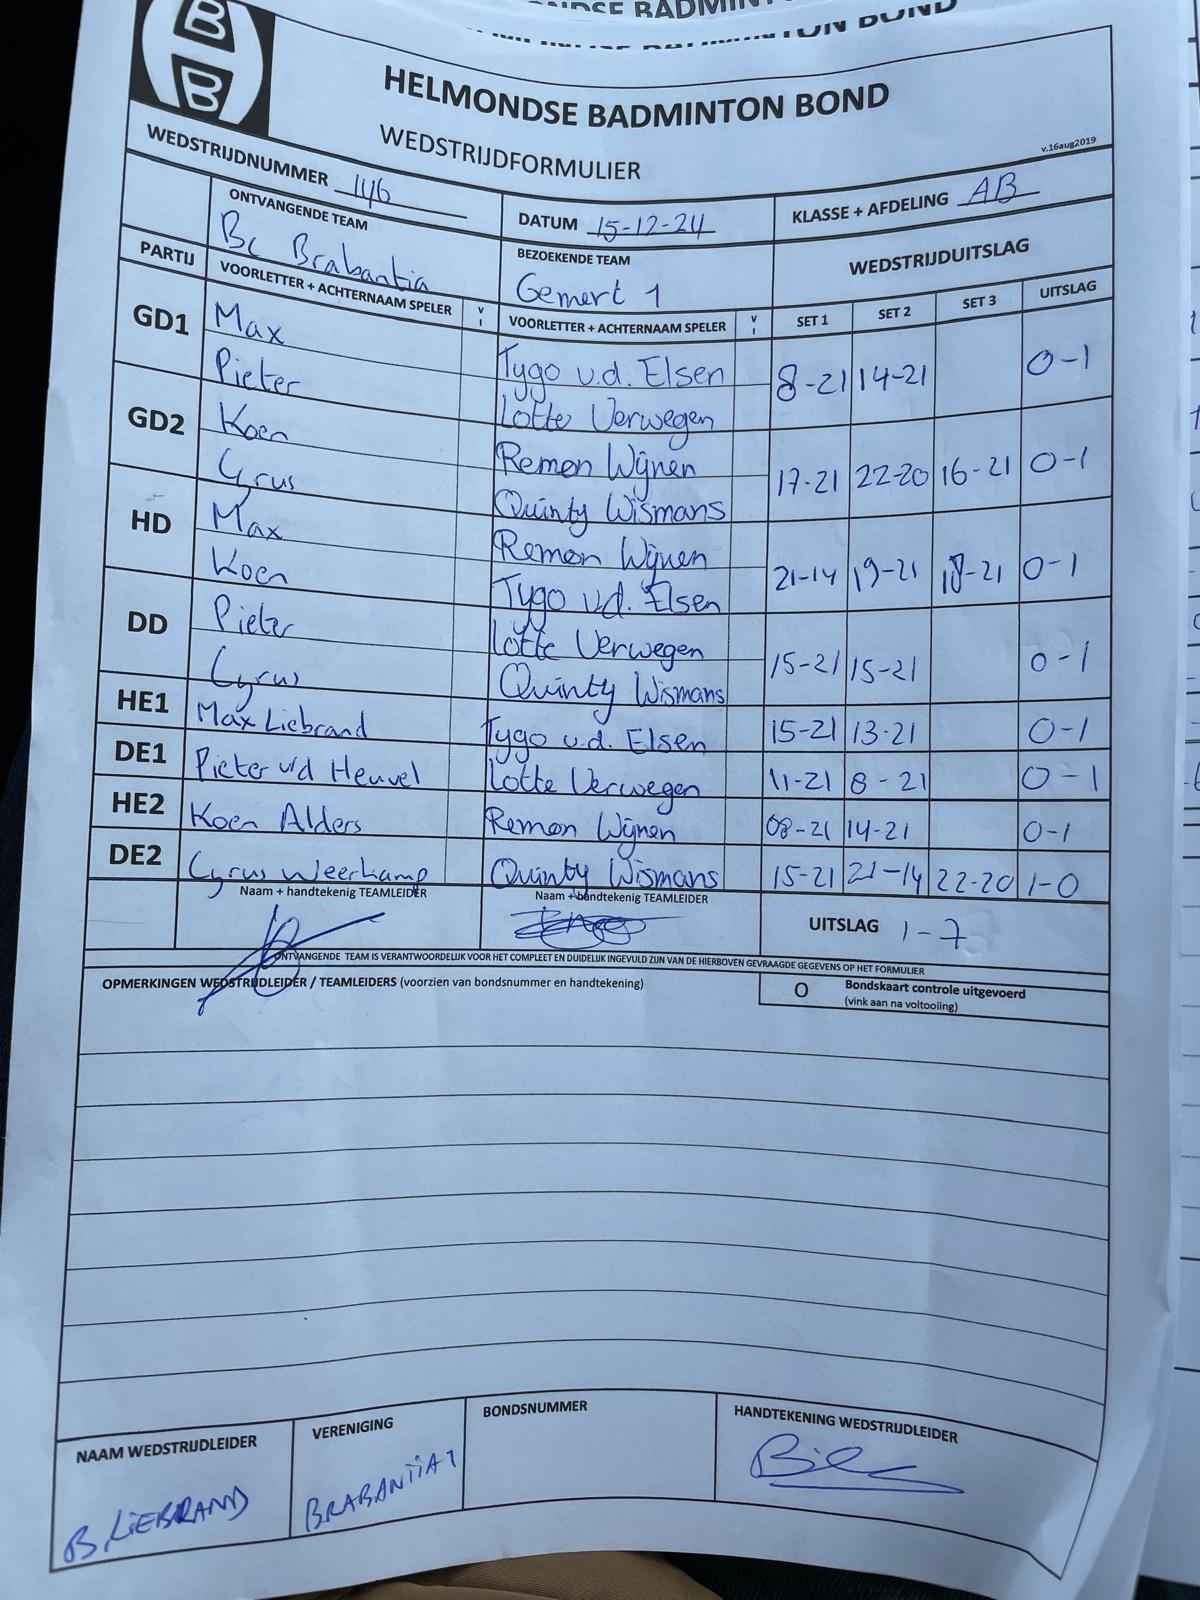 HELMONDSE BADMINTON BOND
WEDSTRIJDFORMULIER
v.16aug2019
WEDSTRIJDNUMMER 146
DATUM 15-12-24
KLASSE + AFDELING AB
ONTVANGENDE TEAM
Bc Brabantia
BEZOEKENDE TEAM
Gemert 1
WEDSTRIJDUITSLAG
PARTIJ VOORLETTER + ACHTERNAAM SPELER V I VOORLETTER + ACHTERNAAM SPELER V I SET 1 SET 2 SET 3 UITSLAG
GD1 Max Tygo v.d. Elsen 8-21 14-21 0-1
Pieter Lotte Verwegen
GD2 Koen Remon Wijnen 17-21 22-20 16-21 0-1
Cyrus Quinty Wismans
HD Max Remon Wijnen 21-14 19-21 18-21 0-1
Koen Tygo v.d. Elsen
DD Pieter Lotte Verwegen 15-21 15-21 0-1
Cyrus Quinty Wismans
HE1 Max Liebrand Tygo v.d. Elsen 15-21 13-21 0-1
DE1 Pieter v/d Heuvel Lotte Verwegen 11-21 8-21 0-1
HE2 Koen Alders Remon Wijnen 08-21 14-21 0-1
DE2 Cyrus Weerkamp Quinty Wismans 15-21 21-14 22-20 1-0
Naam + handtekenig TEAMLEIDER Naam + handtekenig TEAMLEIDER
UITSLAG 1-7
ONTVANGENDE TEAM IS VERANTWOORDELIJK VOOR HET COMPLEET EN DUIDELIJK INGEVULD ZIJN VAN DE HIERBOVEN GEVRAAGDE GEGEVENS OP HET FORMULIER
OPMERKINGEN WEDSTRIJDLEIDER / TEAMLEIDERS (voorzien van bondsnummer en handtekening)
O Bondskaart controle uitgevoerd
(vink aan na voltooiing)
NAAM WEDSTRIJDLEIDER
B. LIEBRAND
VERENIGING
BRABANTIA 1
BONDSNUMMER
HANDTEKENING WEDSTRIJDLEIDER